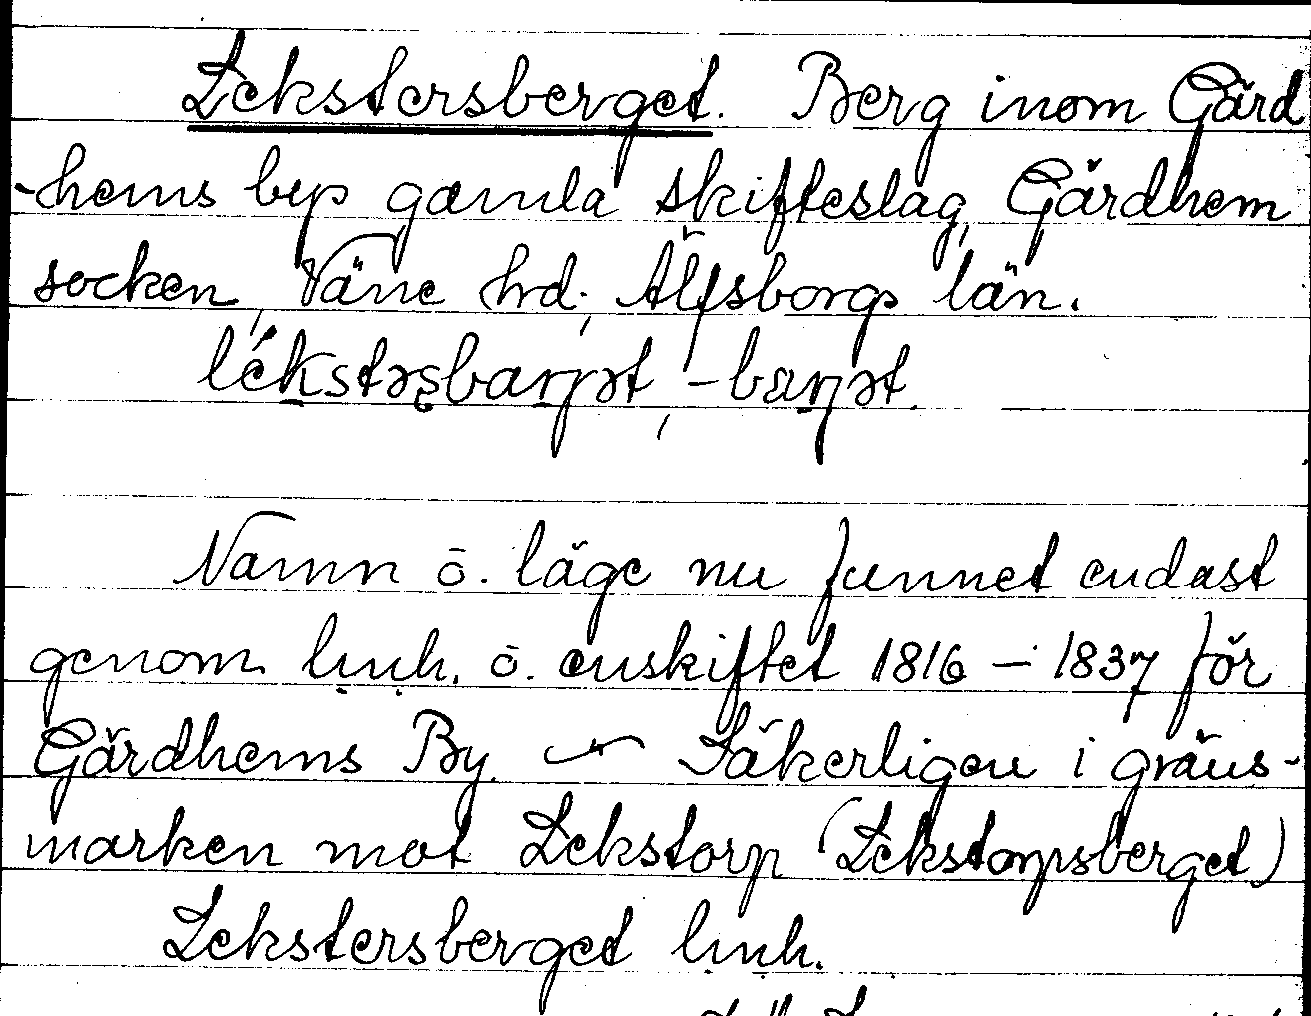 Lekstersberget. Berg inom Gärd
-hems bys gamla skifteslag, Gärdhem
socken, Väne hrd, Älfsborgs län.
lékstəsbarjət, -barjət.
Namn o. läge nu funnet endast
genom lmh. o. enskiftet 1816 – 1837 för
Gärdhems By. – Säkerligen i gräns-
marken mot Lekstorp (Lekstorpsberget)
Lekstersberget lmh.